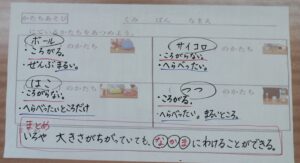 かたちあそび
くみ ばん なまえ
にているかたちをあつめよう。
ボール のかたち
・ころがる。
・ぜんぶまるい。
サイコロ のかたち
・ころがらない。
・へらべったい。
はこ のかたち
・ころがらない。
・へらべったいところだけ
つつ のかたち
・ころがる。
・へらべったい。まるいところ。
まとめ
いろや 大きさがちがっていても、なかまにわけることができる。